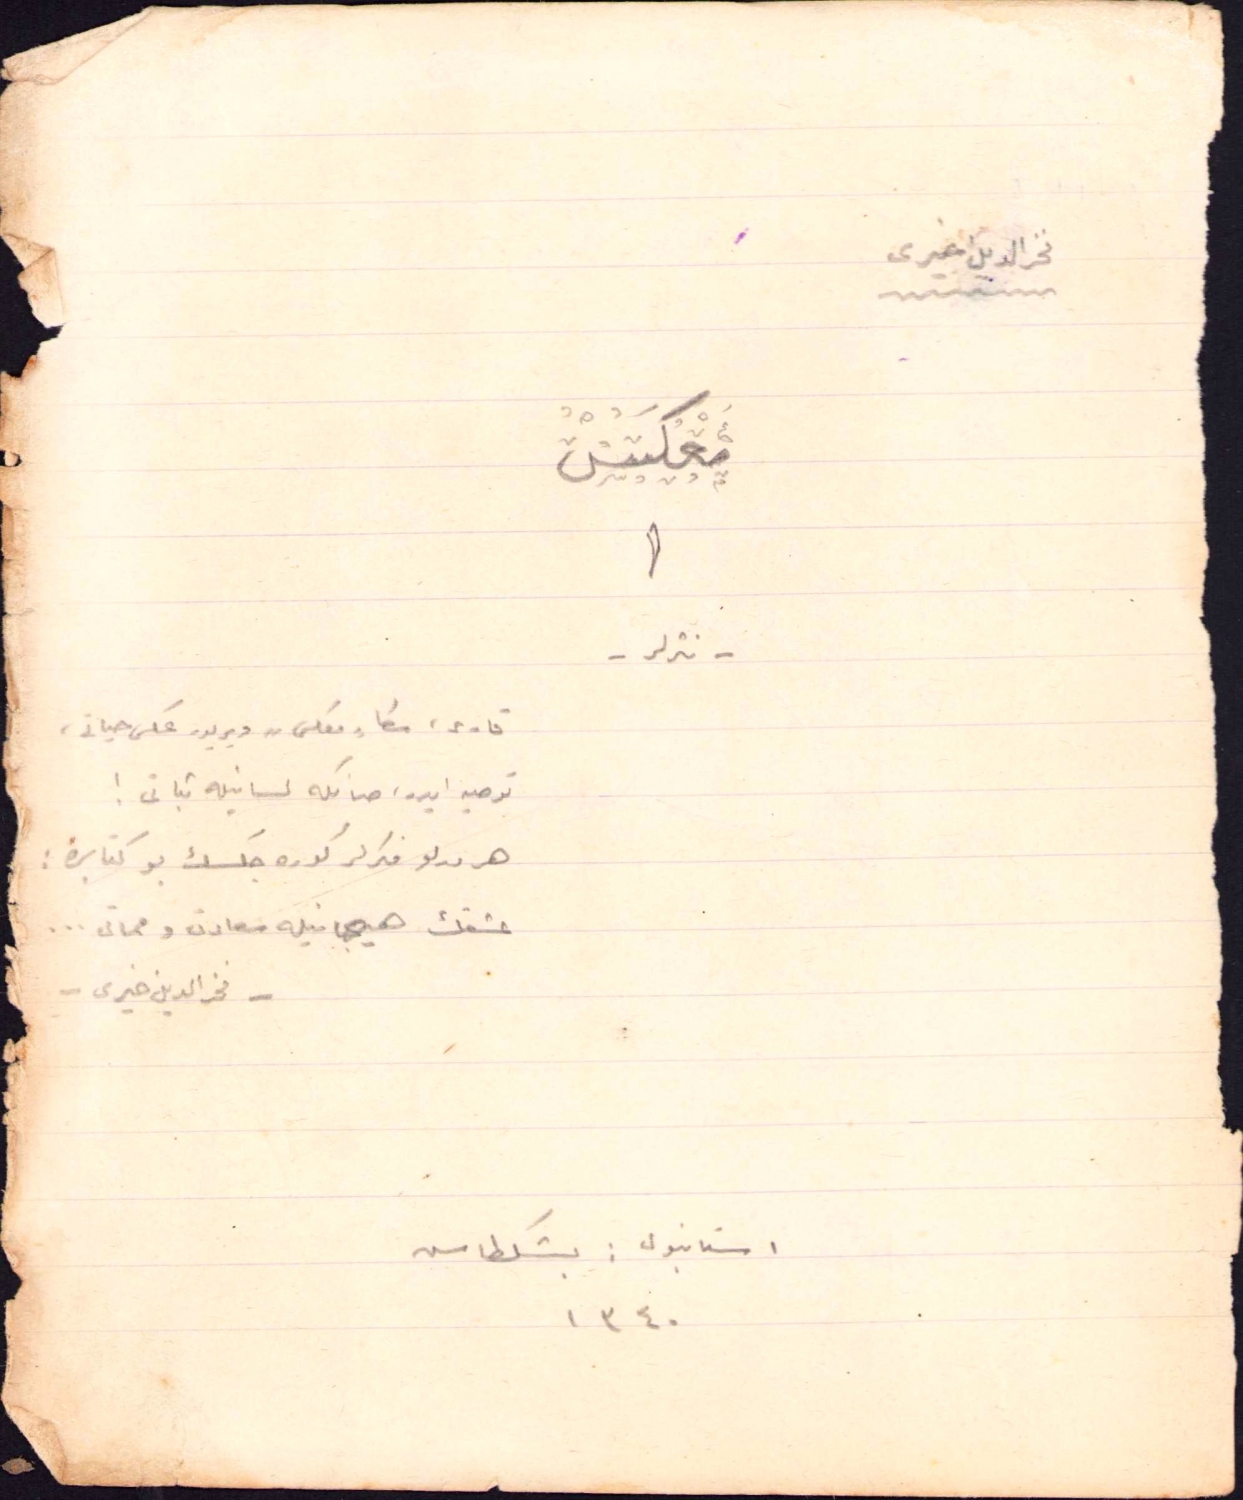 فخرالدین خیری
معكس
١
- نثرلر -
قارئ، سكا «معكس» ویرییور عكس حیاتی،
توصیه ایدر، صانكه لسانیله ثباتی !
هر درلو فكرلر گوره جكسك بو كتابده :
عشقك هیجانیله سعادت و مماتی ...
- فخرالدین خیری -
استانبول : بشكطاش
١٣٤٠